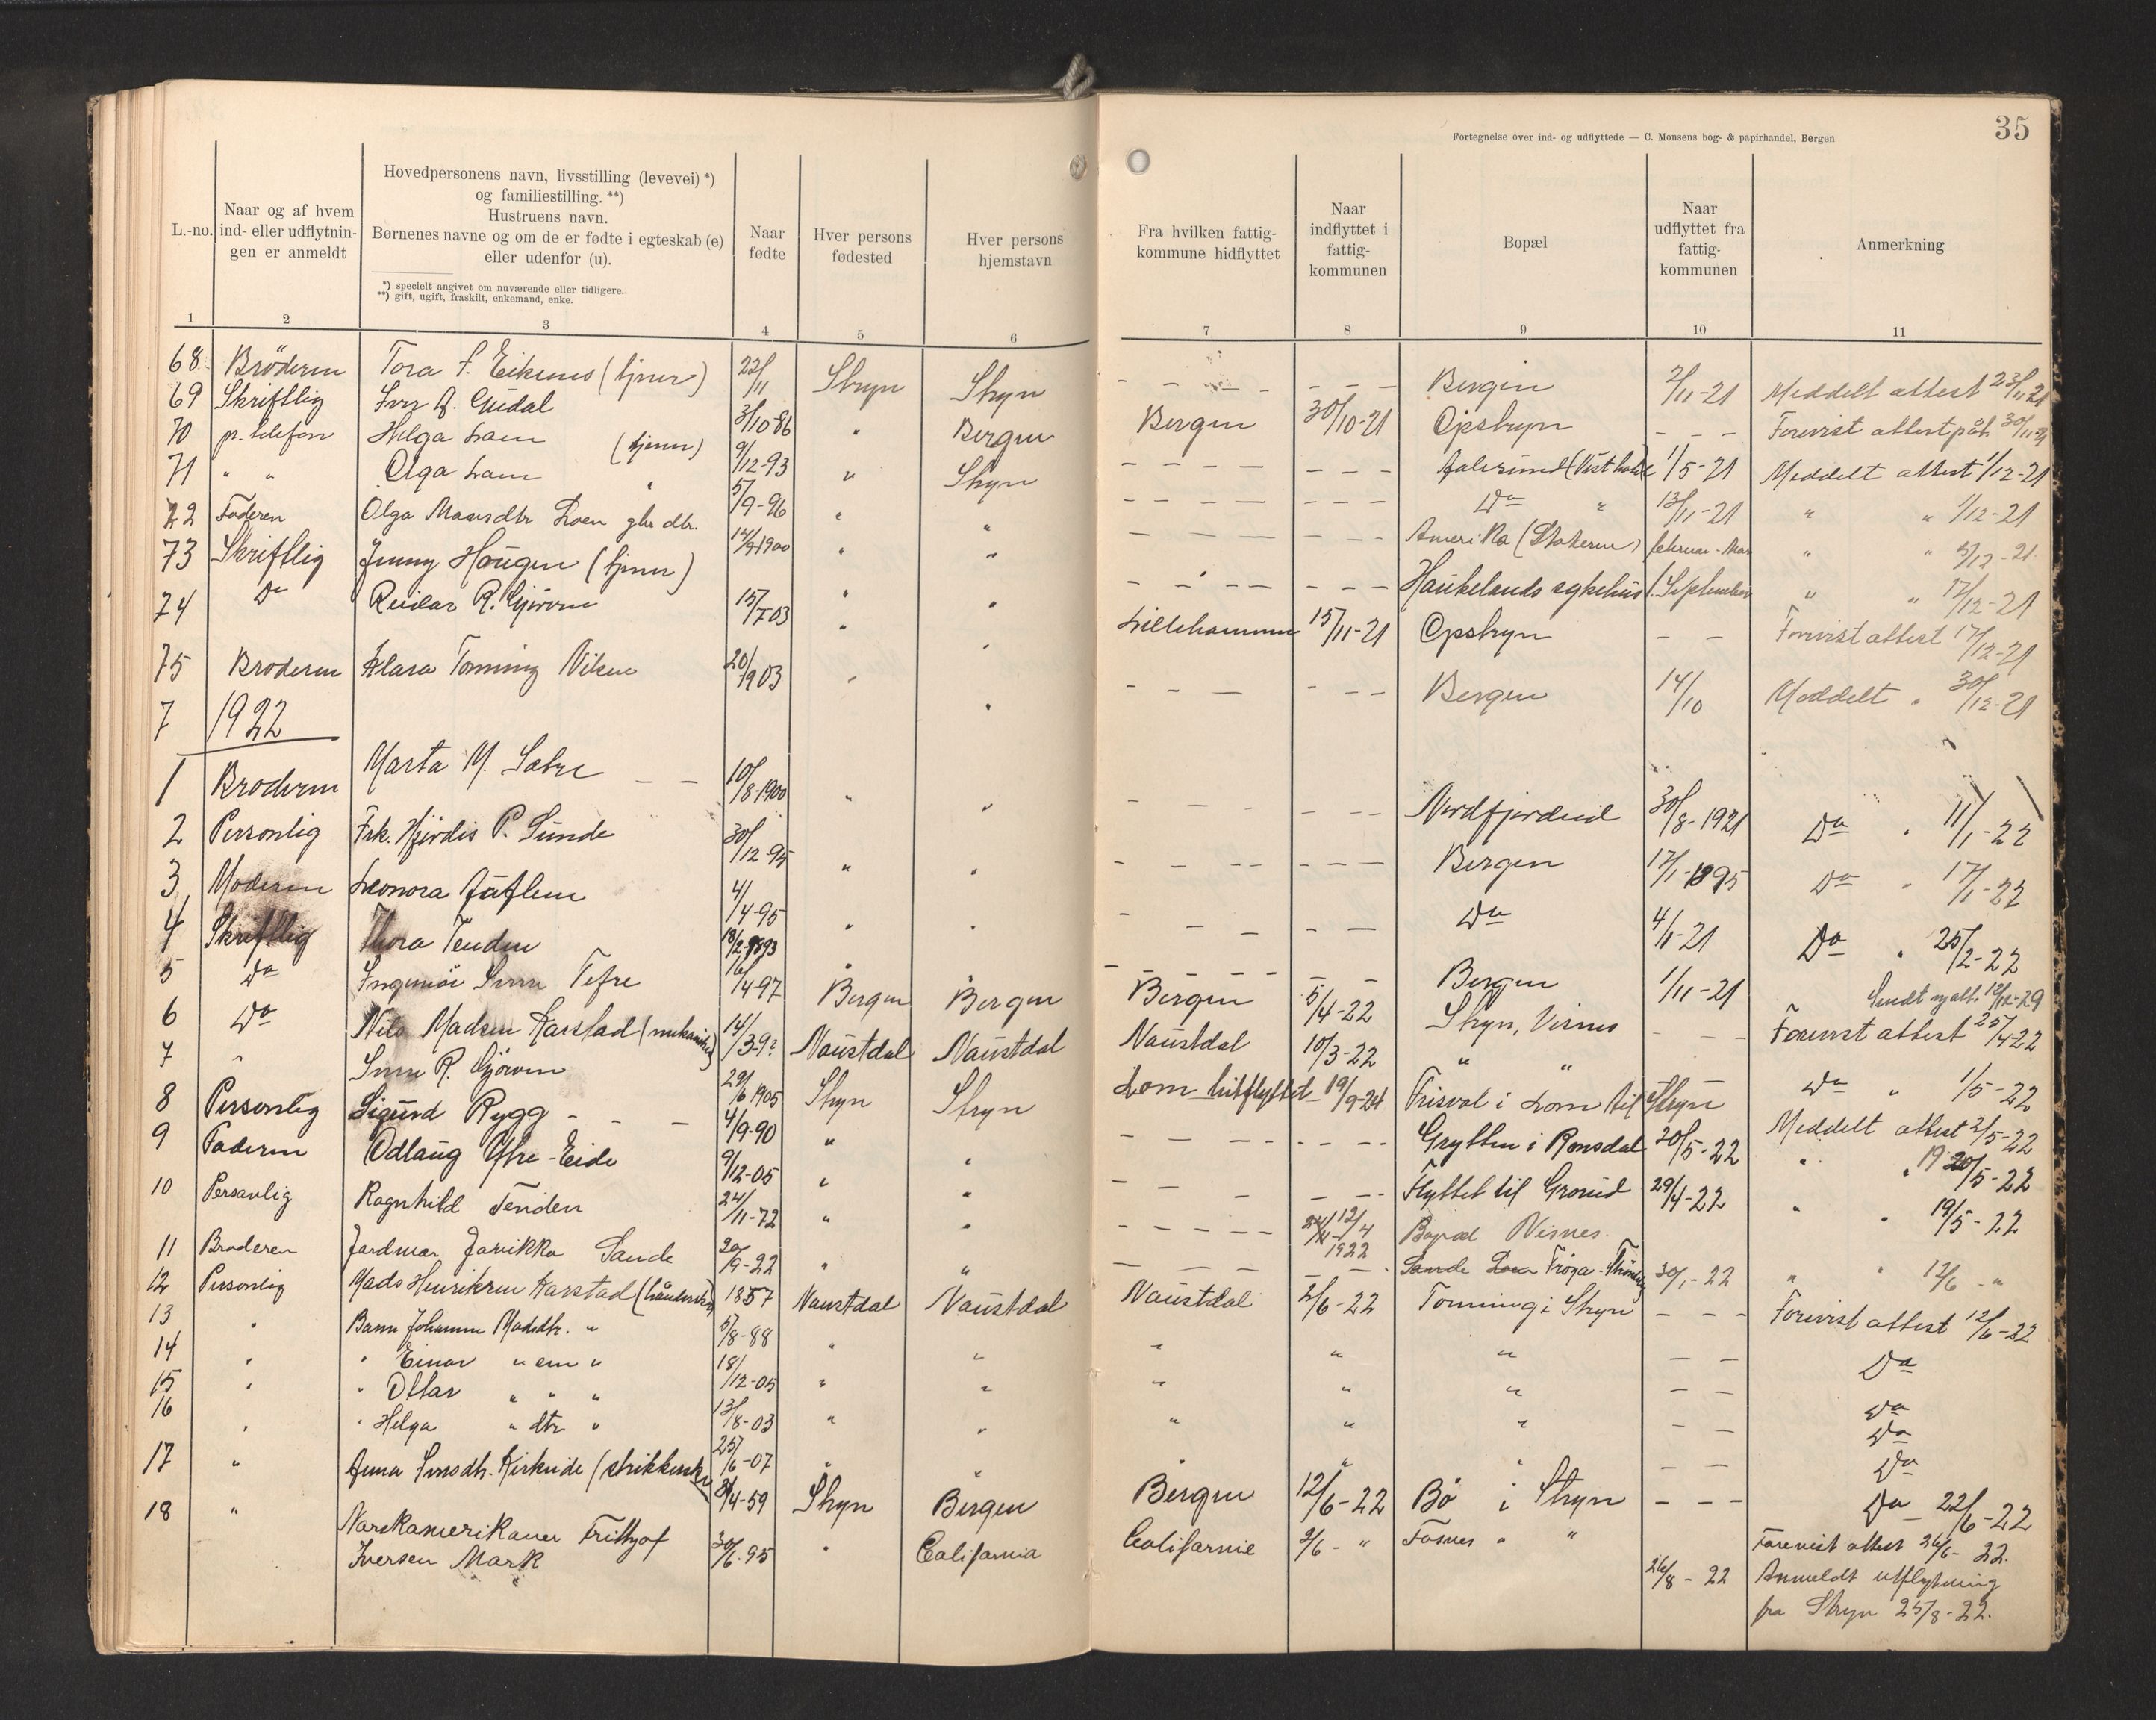 35
Fortegnelse over ind- og udflyttede — C. Monsens bog- & papirhandel, Bergen
L.-no.
Naar og af hvem
ind- eller udflytnin-
gen er anmeldt
Hovedpersonens navn, livsstilling (levevei) *)
og familiestilling. **)
Hustruens navn.
Børnenes navne og om de er fødte i egteskab (e)
eller udenfor (u).
*) specielt angivet om nuværende eller tidligere.
**) gift, ugift, fraskilt, enkemand, enke.
Naar
fødte
Hver persons
fødested
Hver persons
hjemstavn
Fra hvilken fattig-
kommune hidflyttet
Naar
indflyttet i
fattig-
kommunen
Bopæl
Naar
udflyttet fra
fattig-
kommunen
Anmerkning
1 2 3 4 5 6 7 8 9 10 11
68 Bröderen Tora S. Eikenes (tjener) 22/11 Stryn Stryn - - - - - - Bergen 2/11-21 Meddelt attest 23/11 21
69 Skriftlig Iver A. Guddal 3/10-86 " Bergen Bergen 30/10-21 Opstryn - - - Forevist attest 30/11-21
70 pr. telefon Helga Loen (tjener) 9/12-93 " Stryn - - - - - - - 1/5-21 Meddelt attest 1/12-21
71 " " Olga Loen " 5/9-96 " " - - - - - - - Do " 13/11-21 " " 1/12-21
72 Faderen Olga Masesdtr Loen gbr dtr. 14/9-1900 " " - - - - - - - Amerika (Statene) februar - " " 5/12-21
73 Skriftlig Jenny Haugen (tjener) 15/7-03 " " - - - - - - - Haukelands sykehus 1. September " " 17/12-21
74 Do Reidar R. Gjörven " " Lillehammer 15/11-21 Opstryn - - Forevist attest 17/12-21
75 Broderen Klara Tonning Viken 20/9 03 " " - - - - - - Bergen 14/10 Meddelt " 30/12-21
7 1922
1 Broderen Marta M. Sætre - - 10/8-1900 " " - - - - - - Nordfjordeid 30/8-1921 Do " 11/1-22
2 Personlig Frk. Hjördis P. Sunde 30/12-95 " " - - - - - - - Bergen 17/1-1895 Do " 17/1-22
3 Moderen Leonora Auflem 4/4-95 " " - - - - - Do 4/1-21 Do " 25/2-22
4 Skriftlig Thora Tenden 18/2-1893 " " - - - - - - Bergen 1/11-21 Sendt ny att. 12/12-29
5 Do Tefre 16/4-97 Bergen Bergen Bergen 5/4-22 Stryn, Visnes - - Forevist attest 25/4-22
6 Do Nils Madsen Karstad 14/3-9? Naustdal Naustdal Naustdal 10/3-22 " " Do " 1/5-22
7 " R. Gjörven 29/6 1905 Stryn Stryn Lom hitflyttet 19/9-24 Frisvol i Lom til Stryn Meddelt attest 2/5-22
8 Personlig Sigurd Rygg - - - 4/9-90 " " - - - - - - - Grytten i Romsdal 20/5-22 " " 19 20/5-22
9 Faderen Odlaug Yfre-Eide 9/12-05 " " - - - - - Flyttet til Grorud 29/4-22 " " 19/5-22
10 Personlig Ragnhild Tenden 24/11-72 " " - - - - - 12/4 1922 Bopæl Visnes.
11 Broderen Sande 20/9-22 " " - - - - - - Sande Frøya - 30/1-22 " " 12/6 - "
12 Personlig Mads Henriksen Karstad 1857 Naustdal Naustdal Naustdal 2/6-22 Tonning i Stryn - - - Forevist attest 12/6-22
13 " Barn Johanne Madsdtr. " 5/8-88 " " " " " - - Do
14 " " Einar " sen " 18/12-05 " " " " " - - Do
15 " " Ottar " " " 13/8-03 " " " " " - - Do
16 " " Helga " dtr " 25/6-07 " " " " " - - Do
17 " Anna Kirkeide 8/4-59 Stryn Bergen Bergen 12/6-22 Bö i Stryn - - - Do 22/6-22
18 " Norskamerikaner Frithjof
Iversen Mark 30/6-95 " California Californie 2/6 - " Fosnes " " Forevist attest 26/6-22.
26/8-22 Anmeldt utflytning
fra Stryn 25/8-22.